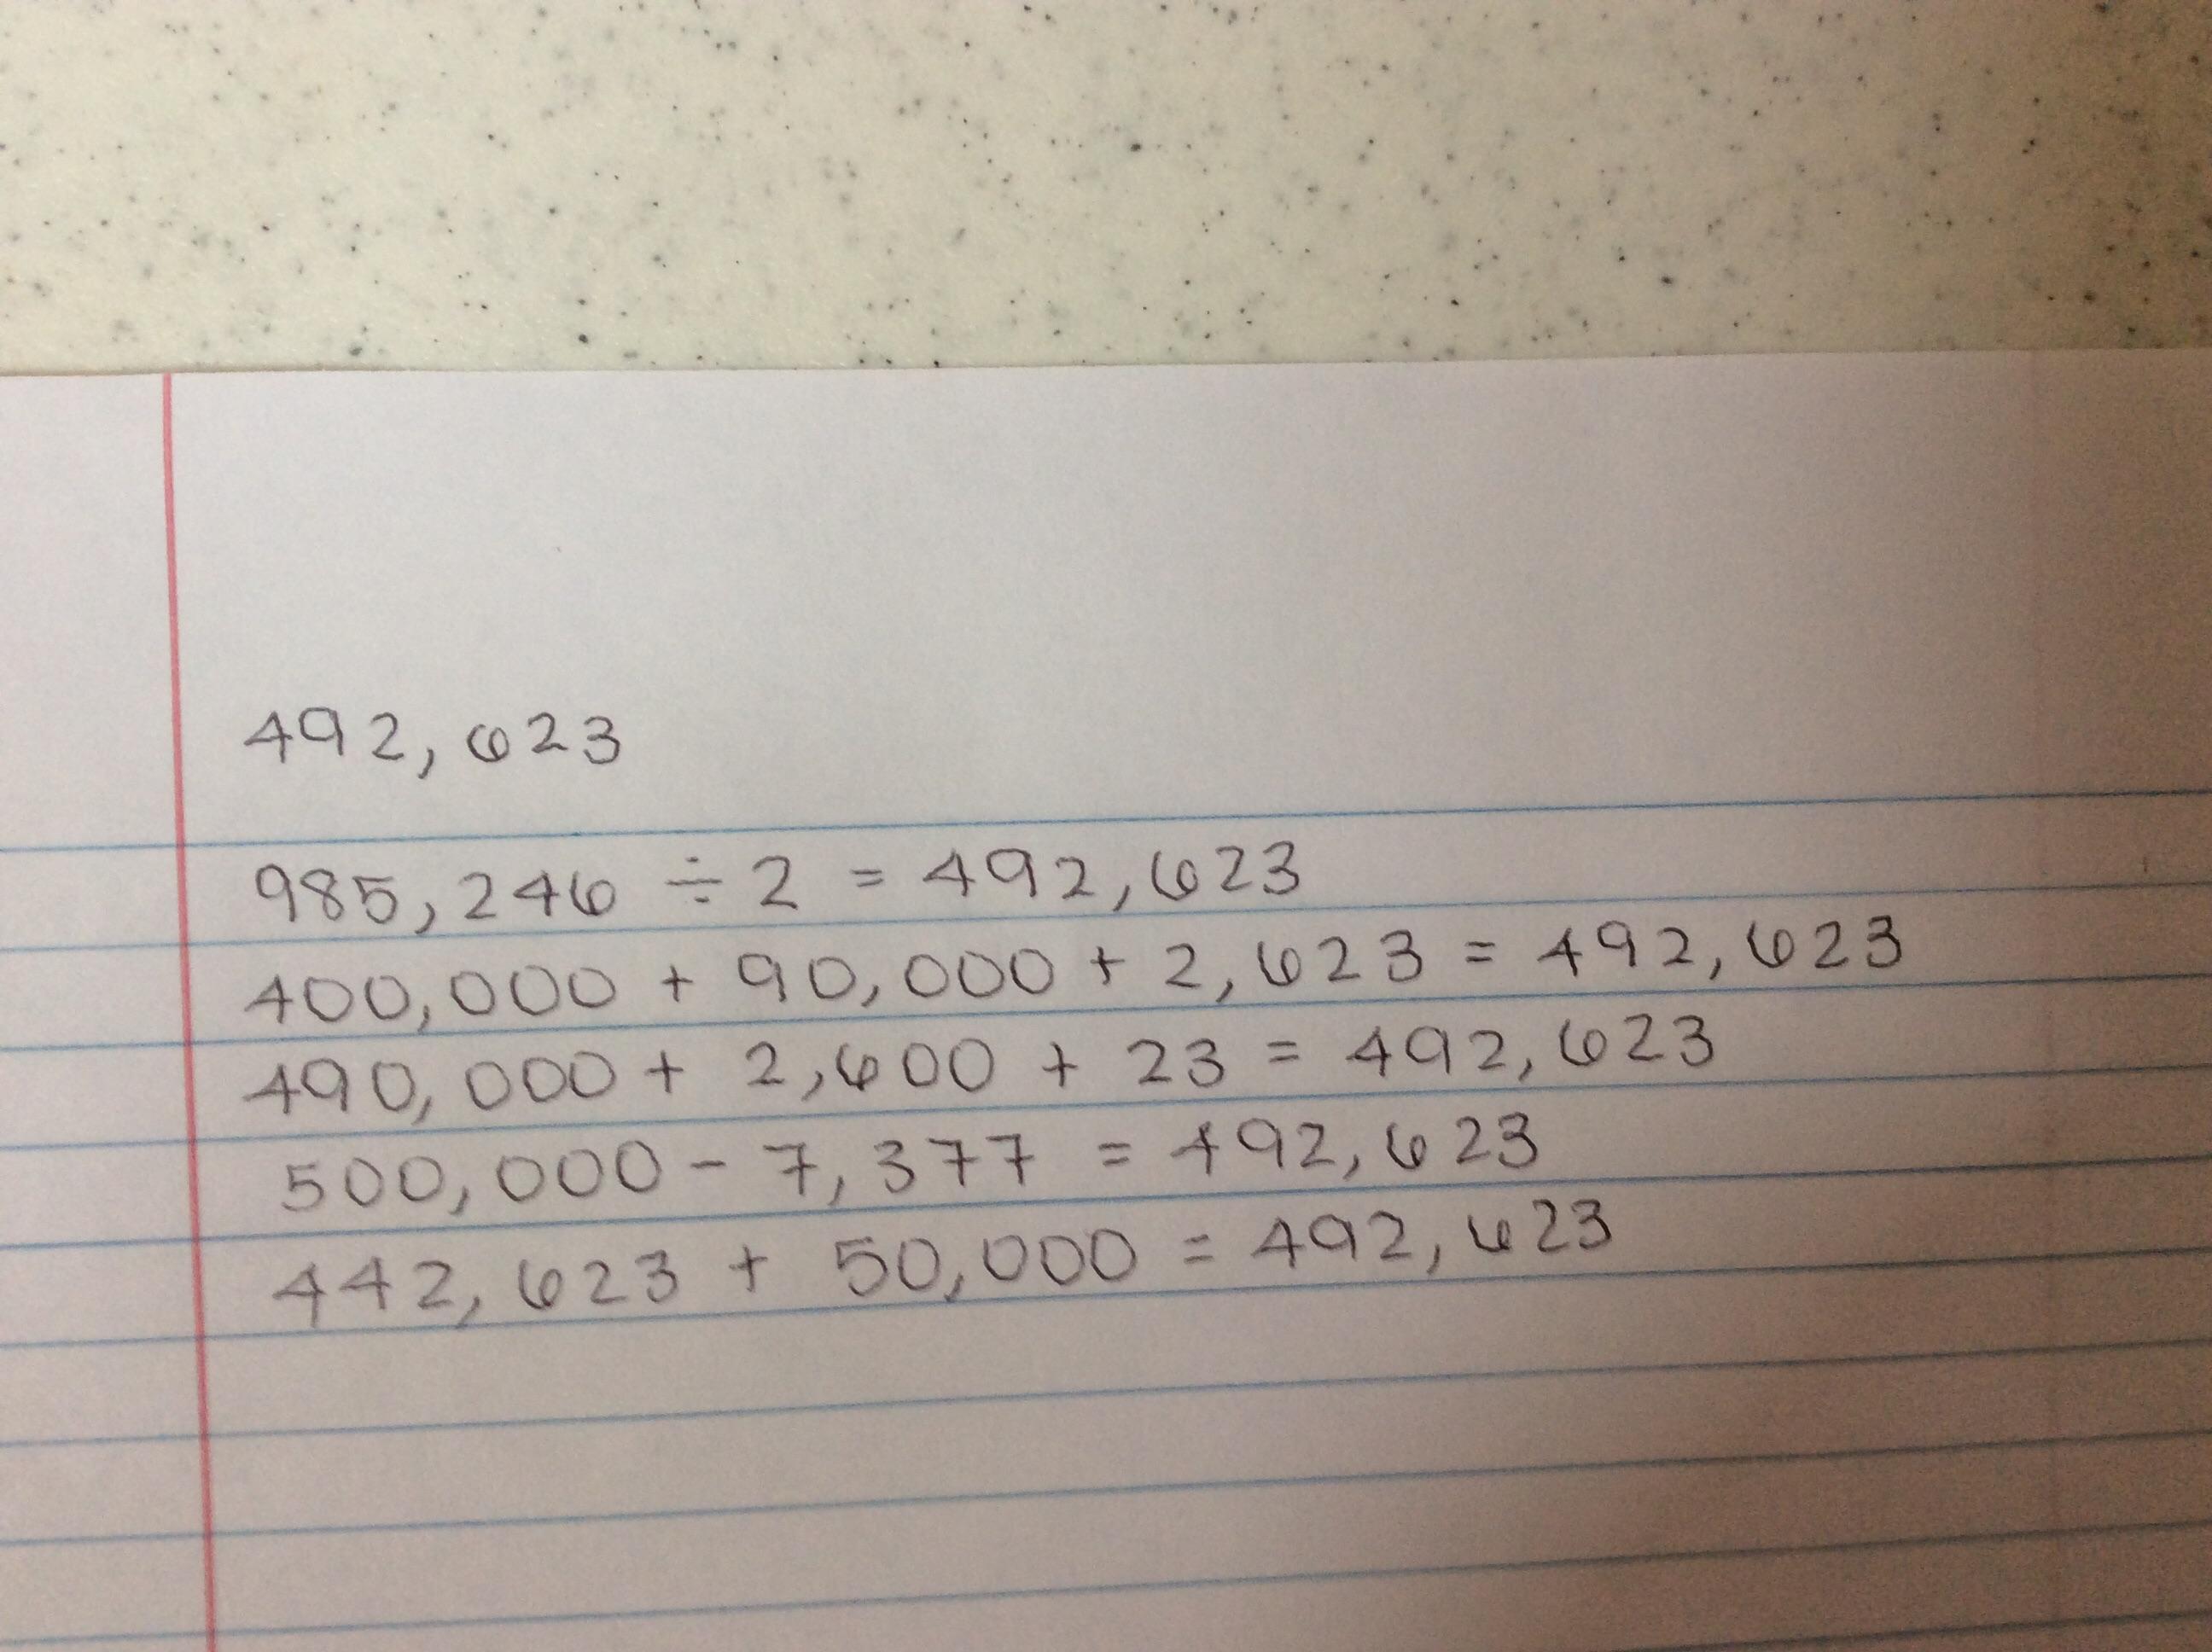 492,623
985,246 ÷ 2 = 492,623
400,000 + 90,000 + 2,623 = 492,623
490,000 + 2,600 + 23 = 492,623
500,000 - 7,377 = 492,623
442,623 + 50,000 = 492,623